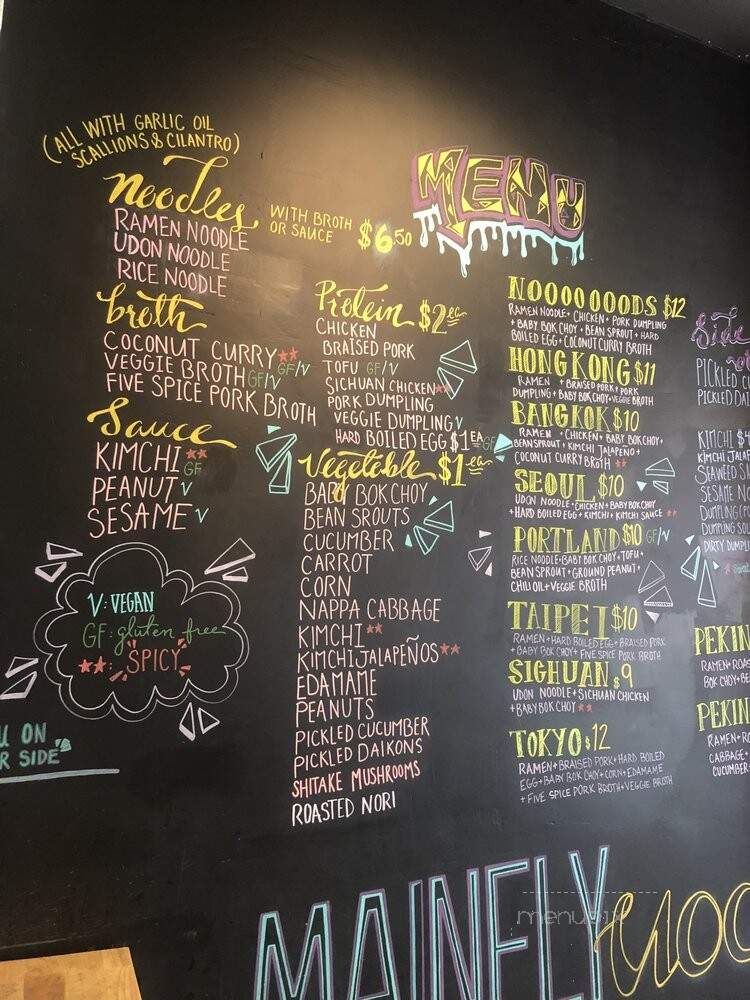 (ALL WITH GARLIC OIL
SCALLIONS & CILANTRO)
Noodles
WITH BROTH
OR SAUCE $6.50
RAMEN NOODLE
UDON NOODLE
RICE NOODLE
broth
COCONUT CURRY ** GF/V
VEGGIE BROTH GF/V
FIVE SPICE PORK BROTH
Sauce
KIMCHI ** GF
PEANUT V
SESAME V
V: VEGAN
GF: gluten free
**: SPICY
U ON
R SIDE
MENU
Protein $2 ea
CHICKEN
BRAISED PORK
TOFU GF/V
SICHUAN CHICKEN **
PORK DUMPLING
VEGGIE DUMPLING V
HARD BOILED EGG $1 EA GF
Vegetable $1 ea
BABY BOK CHOY
BEAN SROUTS
CUCUMBER
CARROT
CORN
NAPPA CABBAGE
KIMCHI **
KIMCHI JALAPEÑOS **
EDAMAME
PEANUTS
PICKLED CUCUMBER
PICKLED DAIKONS
SHITAKE MUSHROOMS
ROASTED NORI
NOOOOOOODS $12
RAMEN NOODLE + CHICKEN + PORK DUMPLING
+ BABY BOK CHOY + BEAN SPROUT + HARD
BOILED EGG + COCONUT CURRY BROTH
HONG KONG $11
RAMEN + BRAISED PORK + PORK
DUMPLING + BABY BOK CHOY + VEGGIE BROTH
BANGKOK $10
RAMEN + CHICKEN + BABY BOK CHOY +
BEAN SPROUT + KIMCHI JALAPEÑO +
COCONUT CURRY BROTH **
SEOUL $10
UDON NOODLE + CHICKEN + BABY BOK CHOY
+ HARD BOILED EGG + KIMCHI + KIMCHI SAUCE **
PORTLAND $10 GF/V
RICE NOODLE + BABY BOK CHOY + TOFU +
BEAN SPROUT + GROUND PEANUT +
CHILI OIL + VEGGIE BROTH
TAIPEI $10
RAMEN + HARD BOILED EGG + BRAISED PORK
+ BABY BOK CHOY + FIVE SPICE PORK BROTH
SIGHUAN $9
UDON NOODLE + SICHUAN CHICKEN
+ BABY BOK CHOY **
TOKYO $12
RAMEN + BRAISED PORK + HARD BOILED
EGG + BABY BOK CHOY + CORN + EDAMAME
+ FIVE SPICE PORK BROTH + VEGGIE BROTH
Side
PICKLED C
PICKLED DAI
KIMCHI $
KIMCHI JALA
SEAWEED S
SESAME NO
DUMPLING (PO
DUMPLING SU
DIRTY DUMPL
PEKIN
RAMEN + ROAS
BOK CHOY + BE
PEKIN
RAMEN + RO
CABBAGE +
CUCUMBER +
MAINELY NOO
menupix